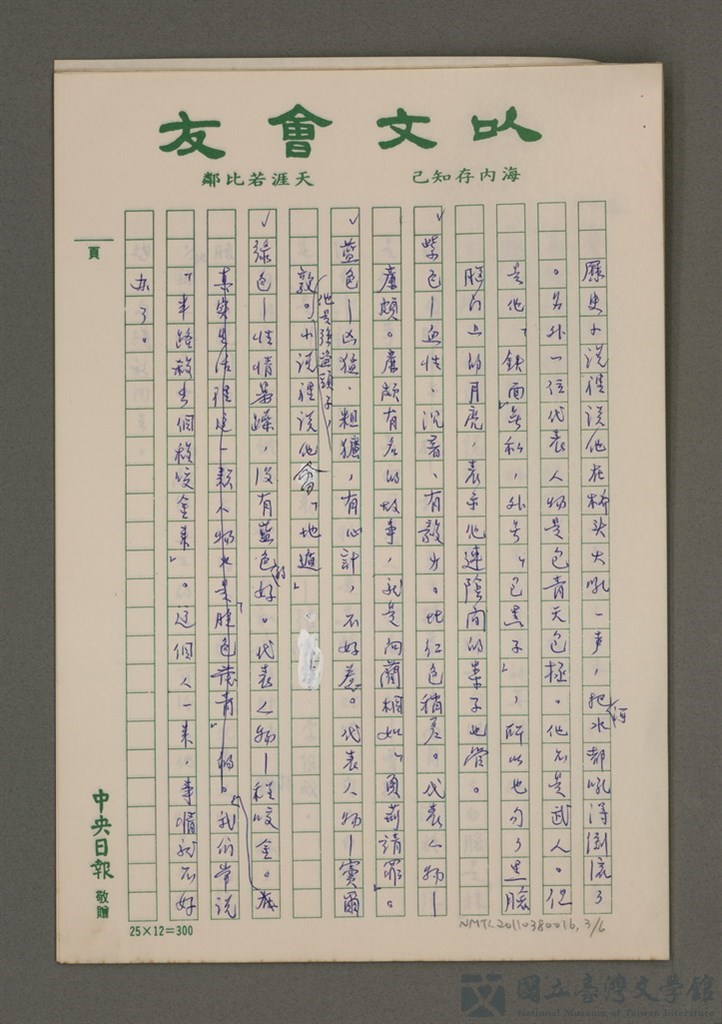 以文會友
海內存知己
天涯若比鄰
歷史小說裡說他在橋头大吼一声，把河水都吼得倒流了
。另外一位代表人物是包青天包拯。他不是武人。但
是他「鉄面無私，外号「包黑子」，所以也勾了黑臉
腦门上的月亮，表示他連陰间的案子也管。
✓紫色—血性、沉着、有毅力。比红色稍差。代表人物—
廉頗。廉頗有名的故事，就是向藺相如「負荊請罪」。
✓藍色—凶猛、粗獷，有心計，不好惹。代表人物—竇爾
敦。（他是強盜頭子）小說裡說他會「地遁」。
✓綠色—性情暴躁，没有藍色的好。代表人物—程咬金。在
真实生活裡這一類人物也是「臉色發青」的。我们常说
「半路殺出個程咬金來」。這個人一來，事情就不好
办了。
頁
中央日報 敬贈
25×12=300
NMTL20110380016, 3/6
國立臺灣文學館
National Museum of Taiwan Literature